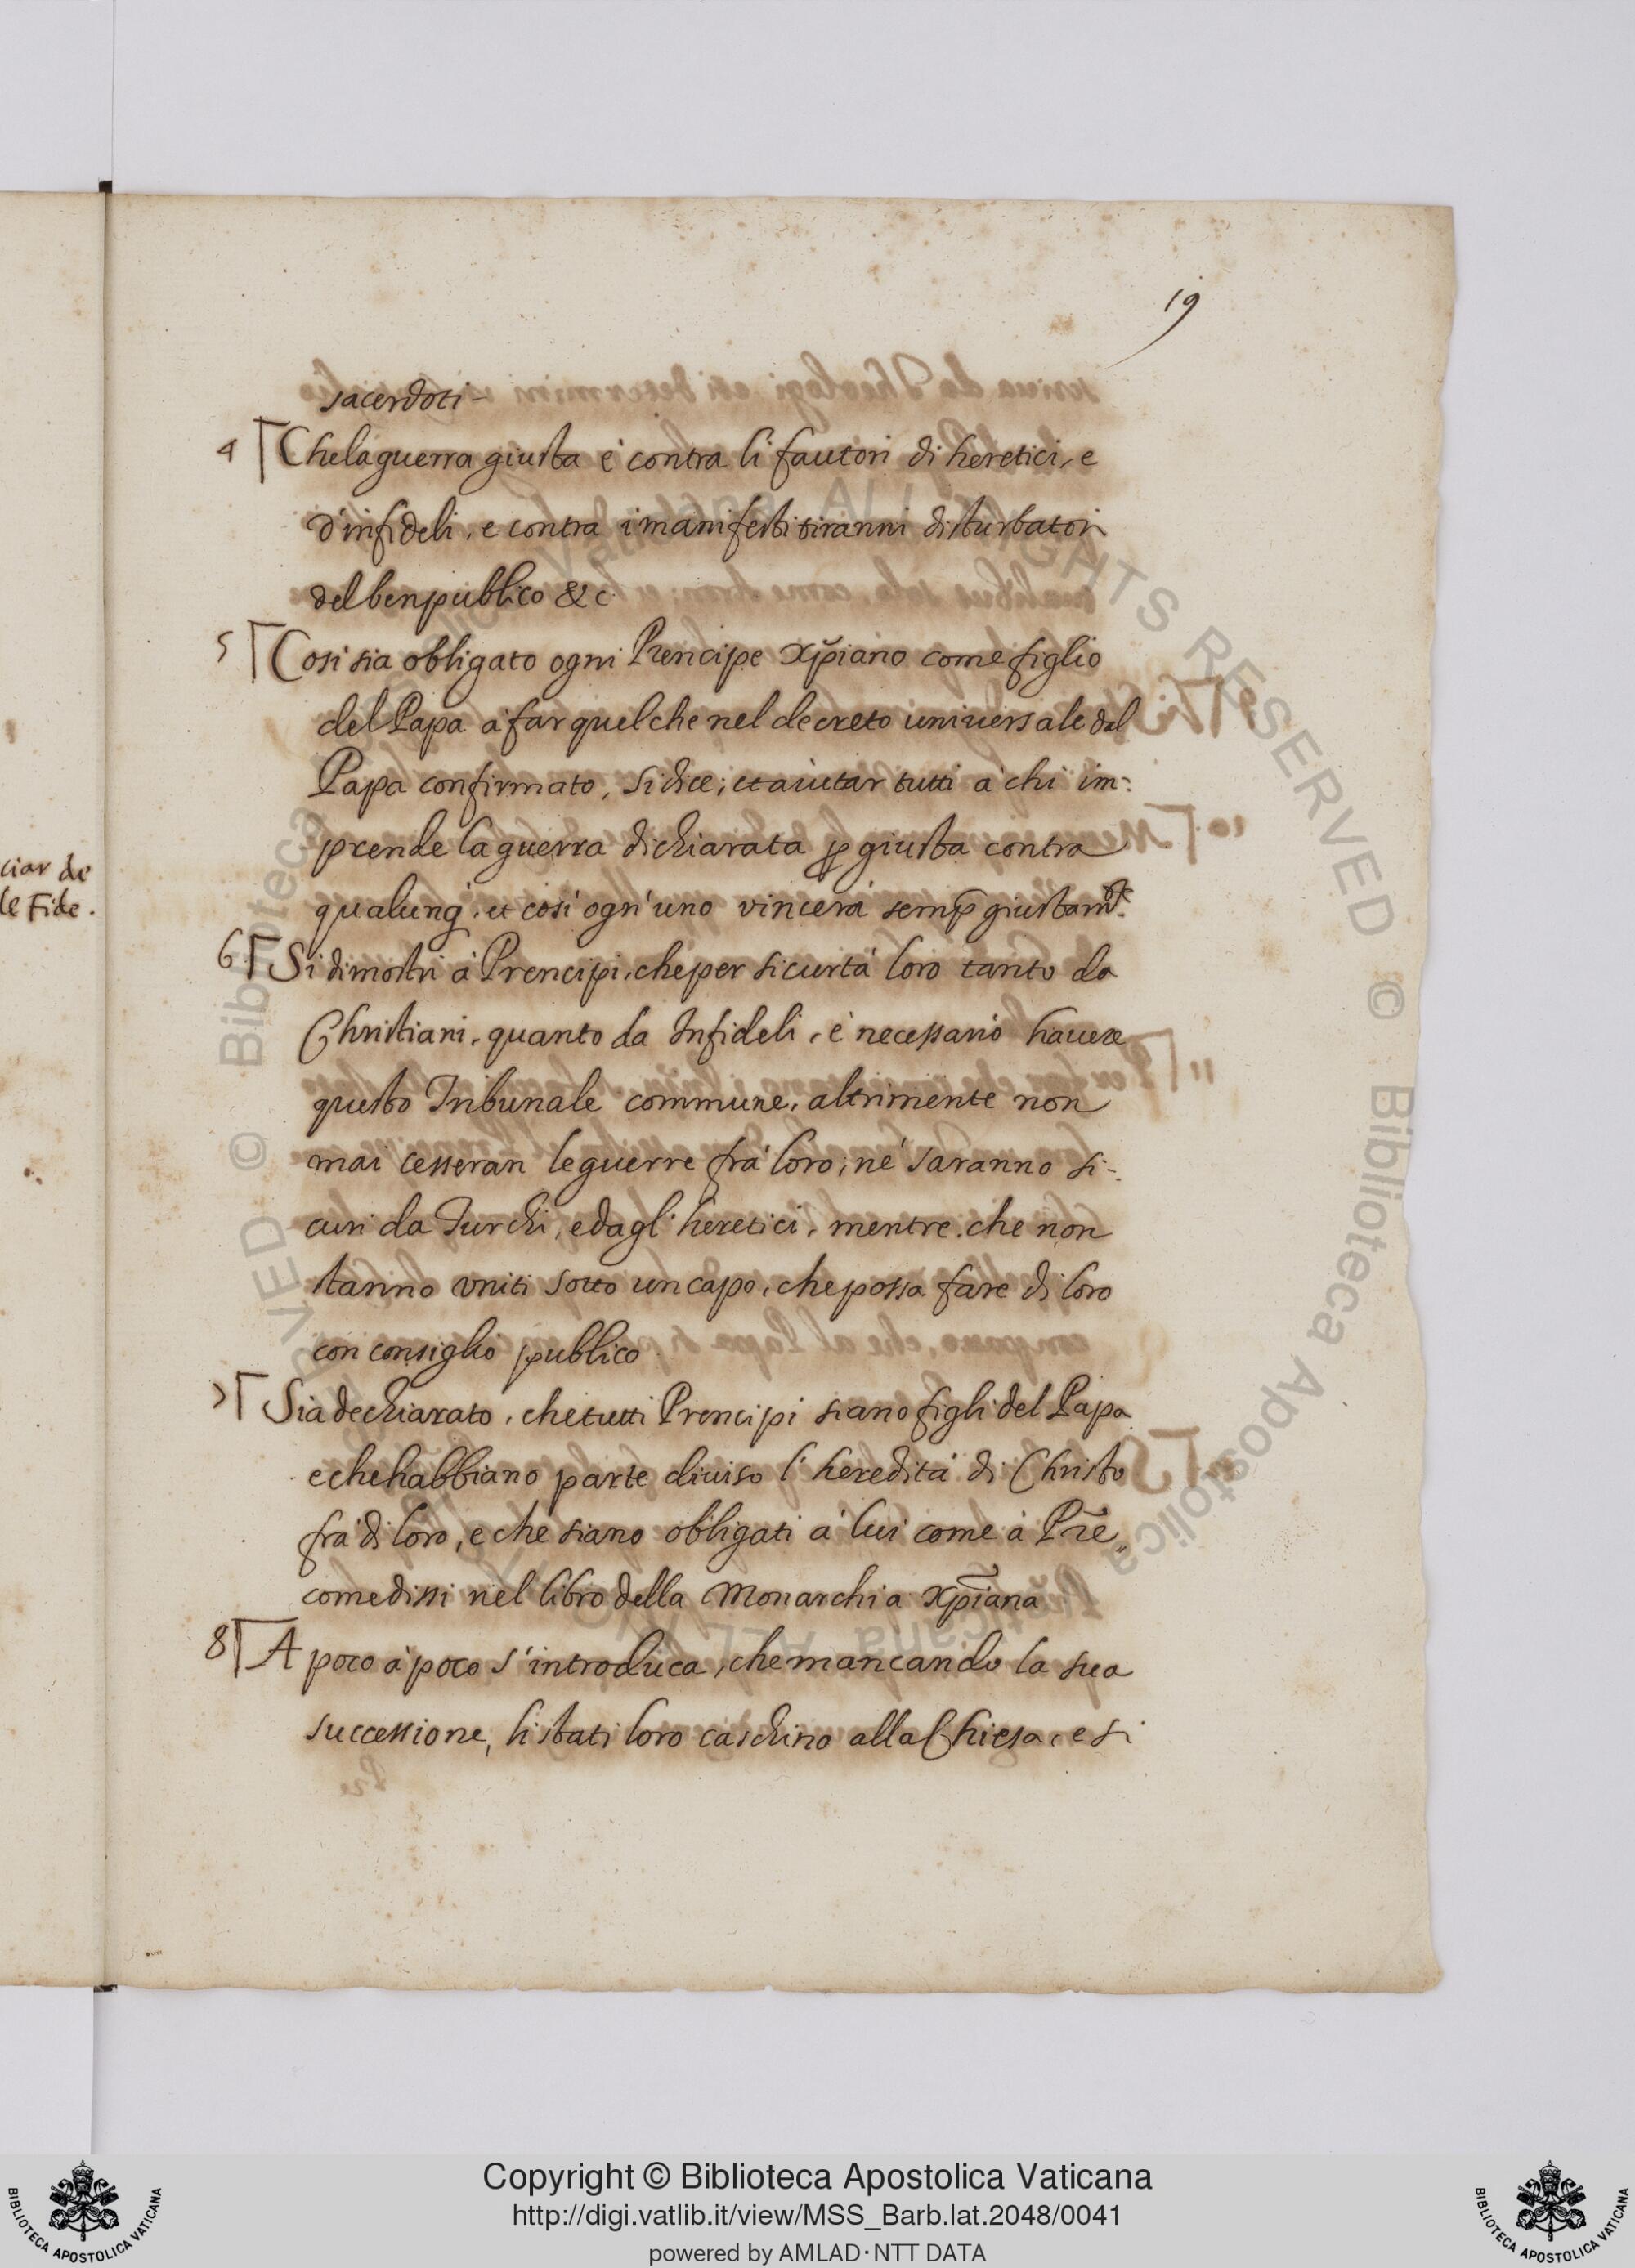 19
sacerdoti-
4 Che la guerra giusta è contra li fautori di heretici, e
d'infideli, e contra i manifesti tiranni disturbatori
del ben publico &c.
5 Cosi sia obligato ogni Prencipe Xp̃iano come figlio
del Papa à far quel che nel decreto universale dal
Papa confirmato, si dice; et aiutar tutti à chi im-
prende la guerra dichiarata ꝑ giusta contra
qualunq̃, et così ogn'uno vincerà semp̃ giustamᵗᵉ.
6 Si dimostri à Prencipi, che per sicurtà loro tanto da
Christiani, quanto da Infideli, è necessario hauere
questo Tribunale commune, altrimente non
mai cesseran le guerre frà loro; nè saranno si-
curi da Turchi, e dagl'heretici, mentre che non
stanno vniti sotto un capo, che possa fare di loro
con consiglio publico.
7 Sia dechiarato, che tutti Prencipi siano figli del Papa
e che habbiano parte diuiso l'heredità di Christo
frà di loro, e che siano obligati à lui come à Pr̃e,
come dissi nel libro della Monarchia Xp̃iana
8 A poco à poco s'introduca, che mancando la sua
successione, li stati loro caschino alla Chiesa, e si
ciar de
le Fide.
© Biblioteca Apostolica Vaticana ALL RIGHTS RESERVED © Biblioteca Apostolica Vaticana ALL RIGHTS RESERVED
BIBLIOTECA APOSTOLICA VATICANA
Copyright © Biblioteca Apostolica Vaticana
http://digi.vatlib.it/view/MSS_Barb.lat.2048/0041
powered by AMLAD·NTT DATA
BIBLIOTECA APOSTOLICA VATICANA